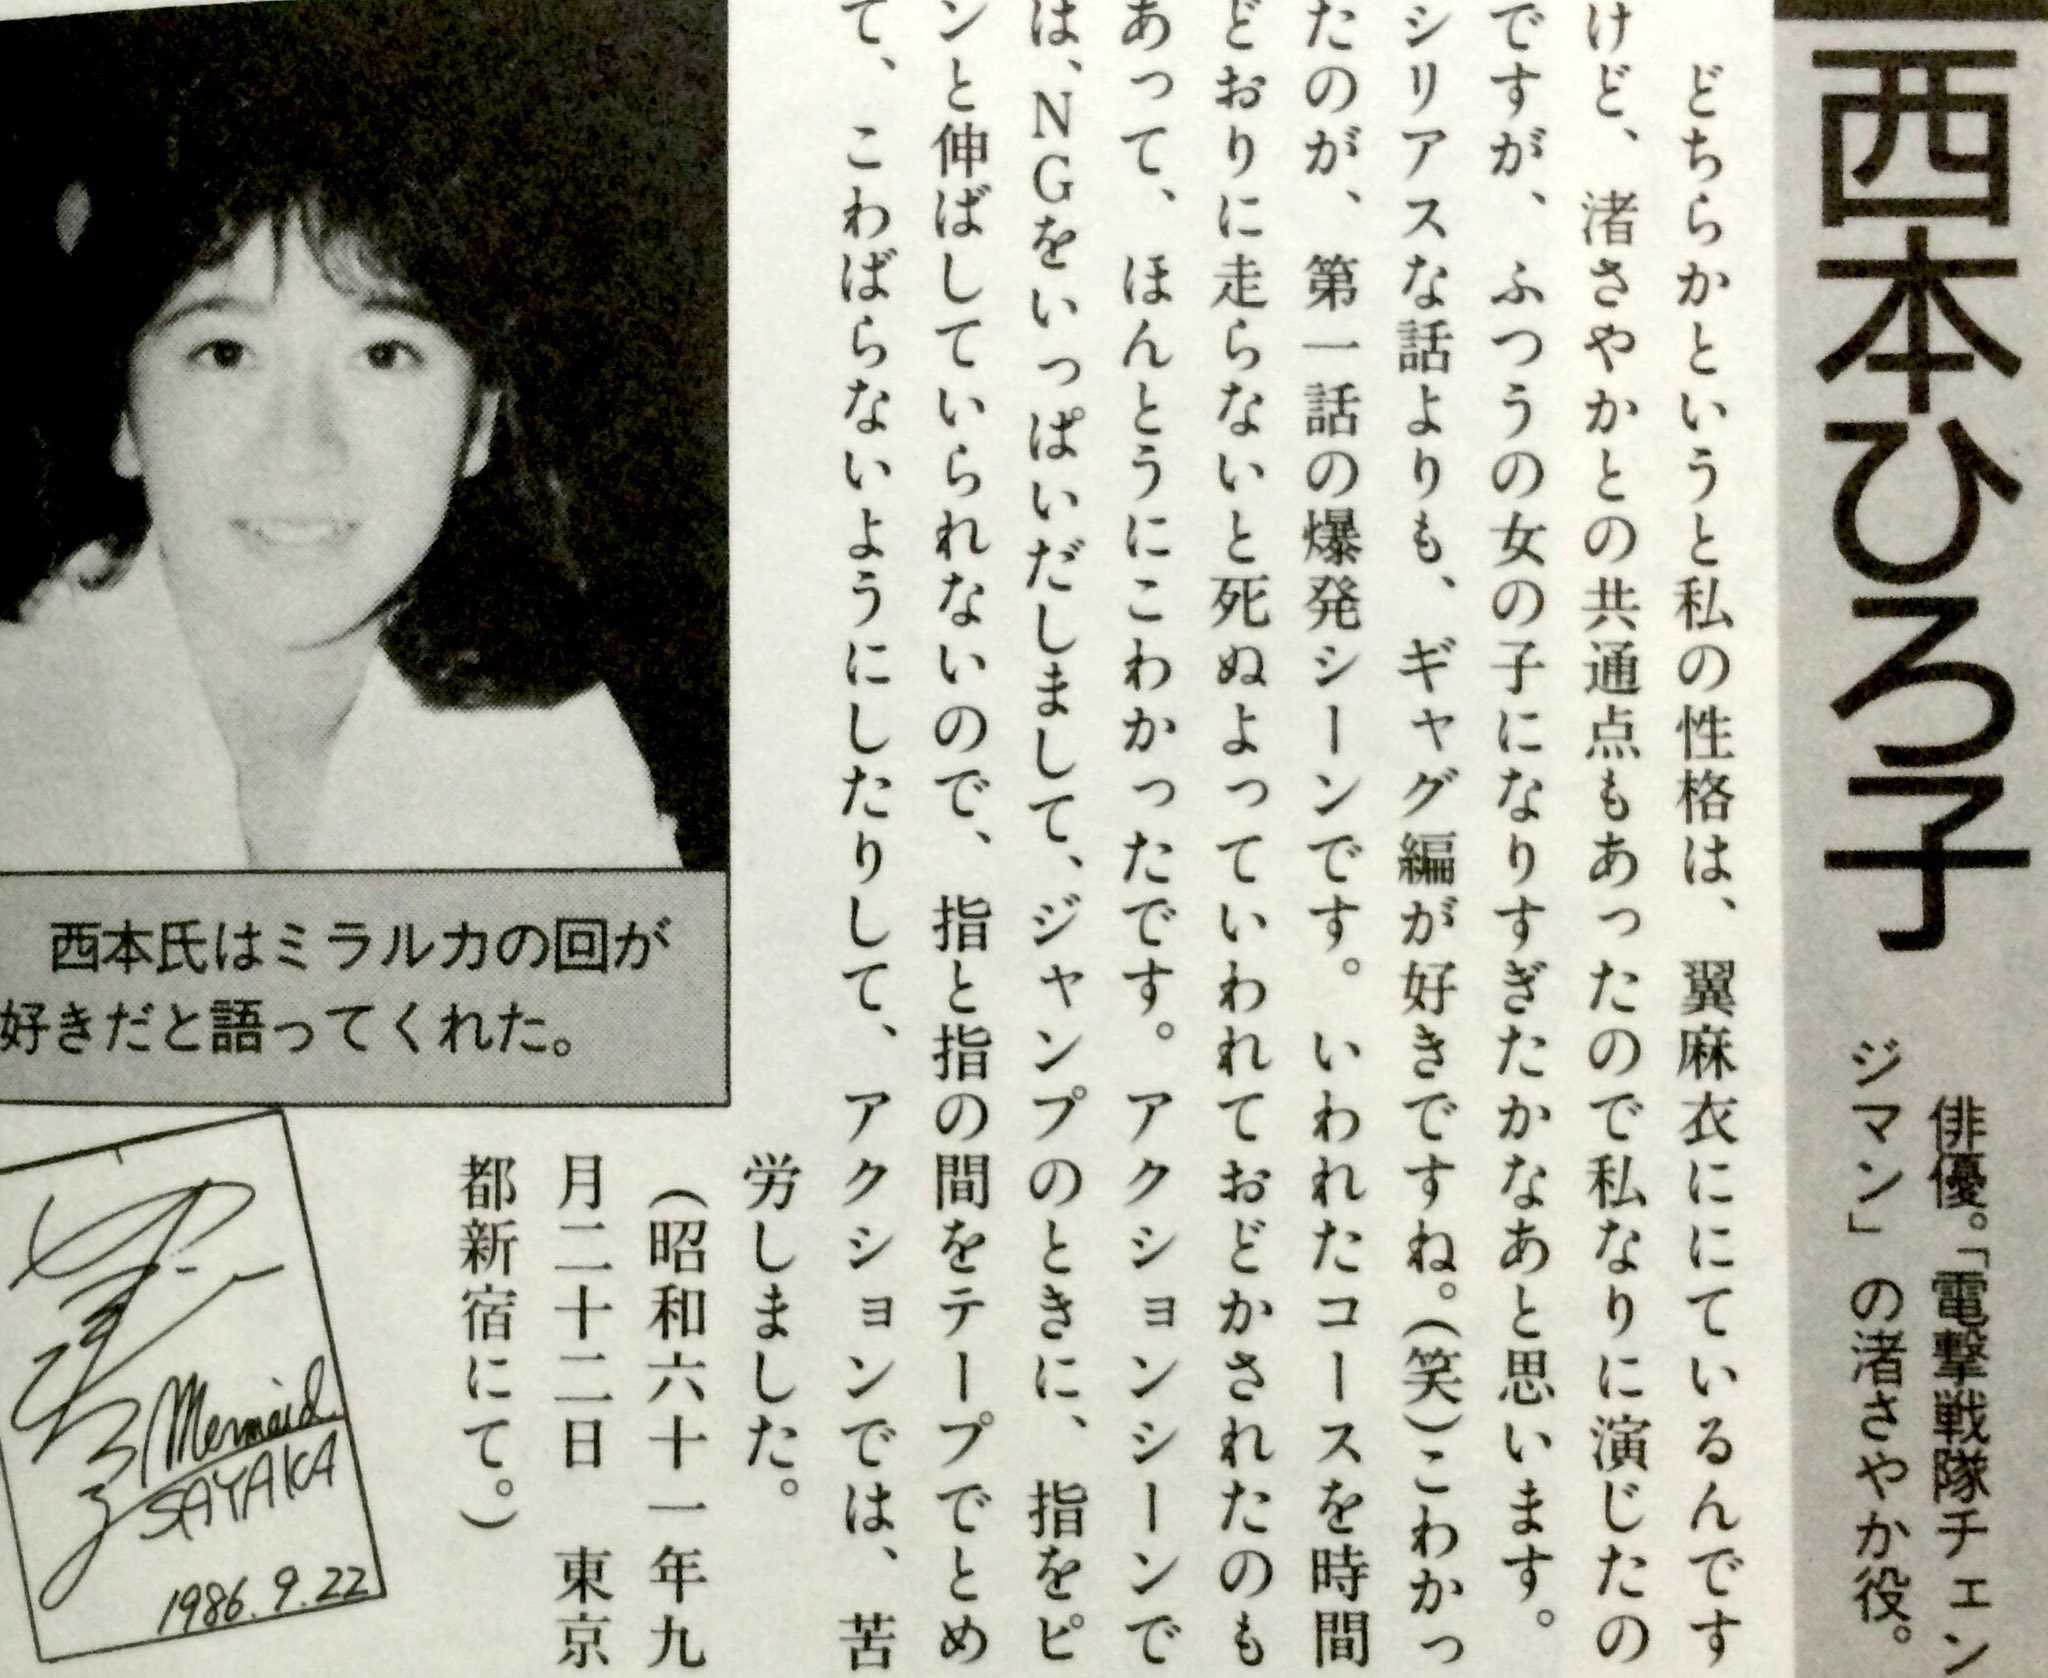 西本ひろ子
俳優。「電撃戦隊チェン
ジマン」の渚さやか役。
どちらかというと私の性格は、翼麻衣ににているんです
けど、渚さやかとの共通点もあったので私なりに演じたの
ですが、ふつうの女の子になりすぎたかなあと思います。
シリアスな話よりも、ギャグ編が好きですね。(笑)こわかっ
たのが、第一話の爆発シーンです。いわれたコースを時間
どおりに走らないと死ぬよっていわれておどかされたのも
あって、ほんとうにこわかったです。アクションシーンで
は、NGをいっぱいだしまして、ジャンプのときに、指をピ
ンと伸ばしていられないので、指と指の間をテープでとめ
て、こわばらないようにしたりして、アクションでは、苦
労しました。
(昭和六十一年九
月二十二日 東京
都新宿にて。)
西本氏はミラルカの回が
好きだと語ってくれた。
Mermaid
SAYAKA
1986.9.22